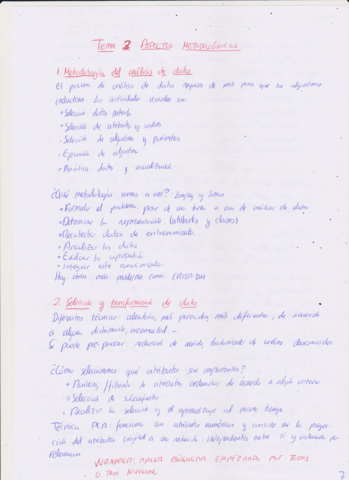 TEMA 2 ASPECTOS METODOLÓGICOS
1. Metodología del análisis de datos
El proceso de análisis de datos requiere de más pasos que los algoritmos
Las actividades usuales son:
• Selección datos
• Selección de atributos y
• Selección de algoritmo y parámetros
• Ejecución de algoritmo
• Analizar datos y visualización.
¿Qué metodología vamos a ver? Langley y Simon
• Formular el problema: pasar de un tarea a uno de análisis de datos
• Determinar la representación (atributos y clases)
• Recolectar datos de entrenamiento
• Analizar los datos
• Evaluar lo aprendido
• Integrar este conocimiento.
Hay otras más modernas como CRISP-DM
2. Selección y transformación de datos
Diferentes técnicas: aleatorios, más parecidos, más diferentes, de acuerdo
a alguna distribución, incremental...
Se puede pre-procesar: reducción de ruido, tratamiento de valores desconocidos.
¿Cómo seleccionamos qué atributos son importantes?
• Ranking/filtrado: los atributos ordenados de acuerdo a algún criterio
• Selección de subconjuntos
• Realizar la selección y el aprendizaje al mismo tiempo.
Técnica PCA: funciona con atributos numéricos y consiste en la
de atributos a un independientes entre sí y ordenados por
relevancia
WRAPPER: HACER BÚSQUEDA EMPEZANDO POR TODOS
O POR NINGUNO
7